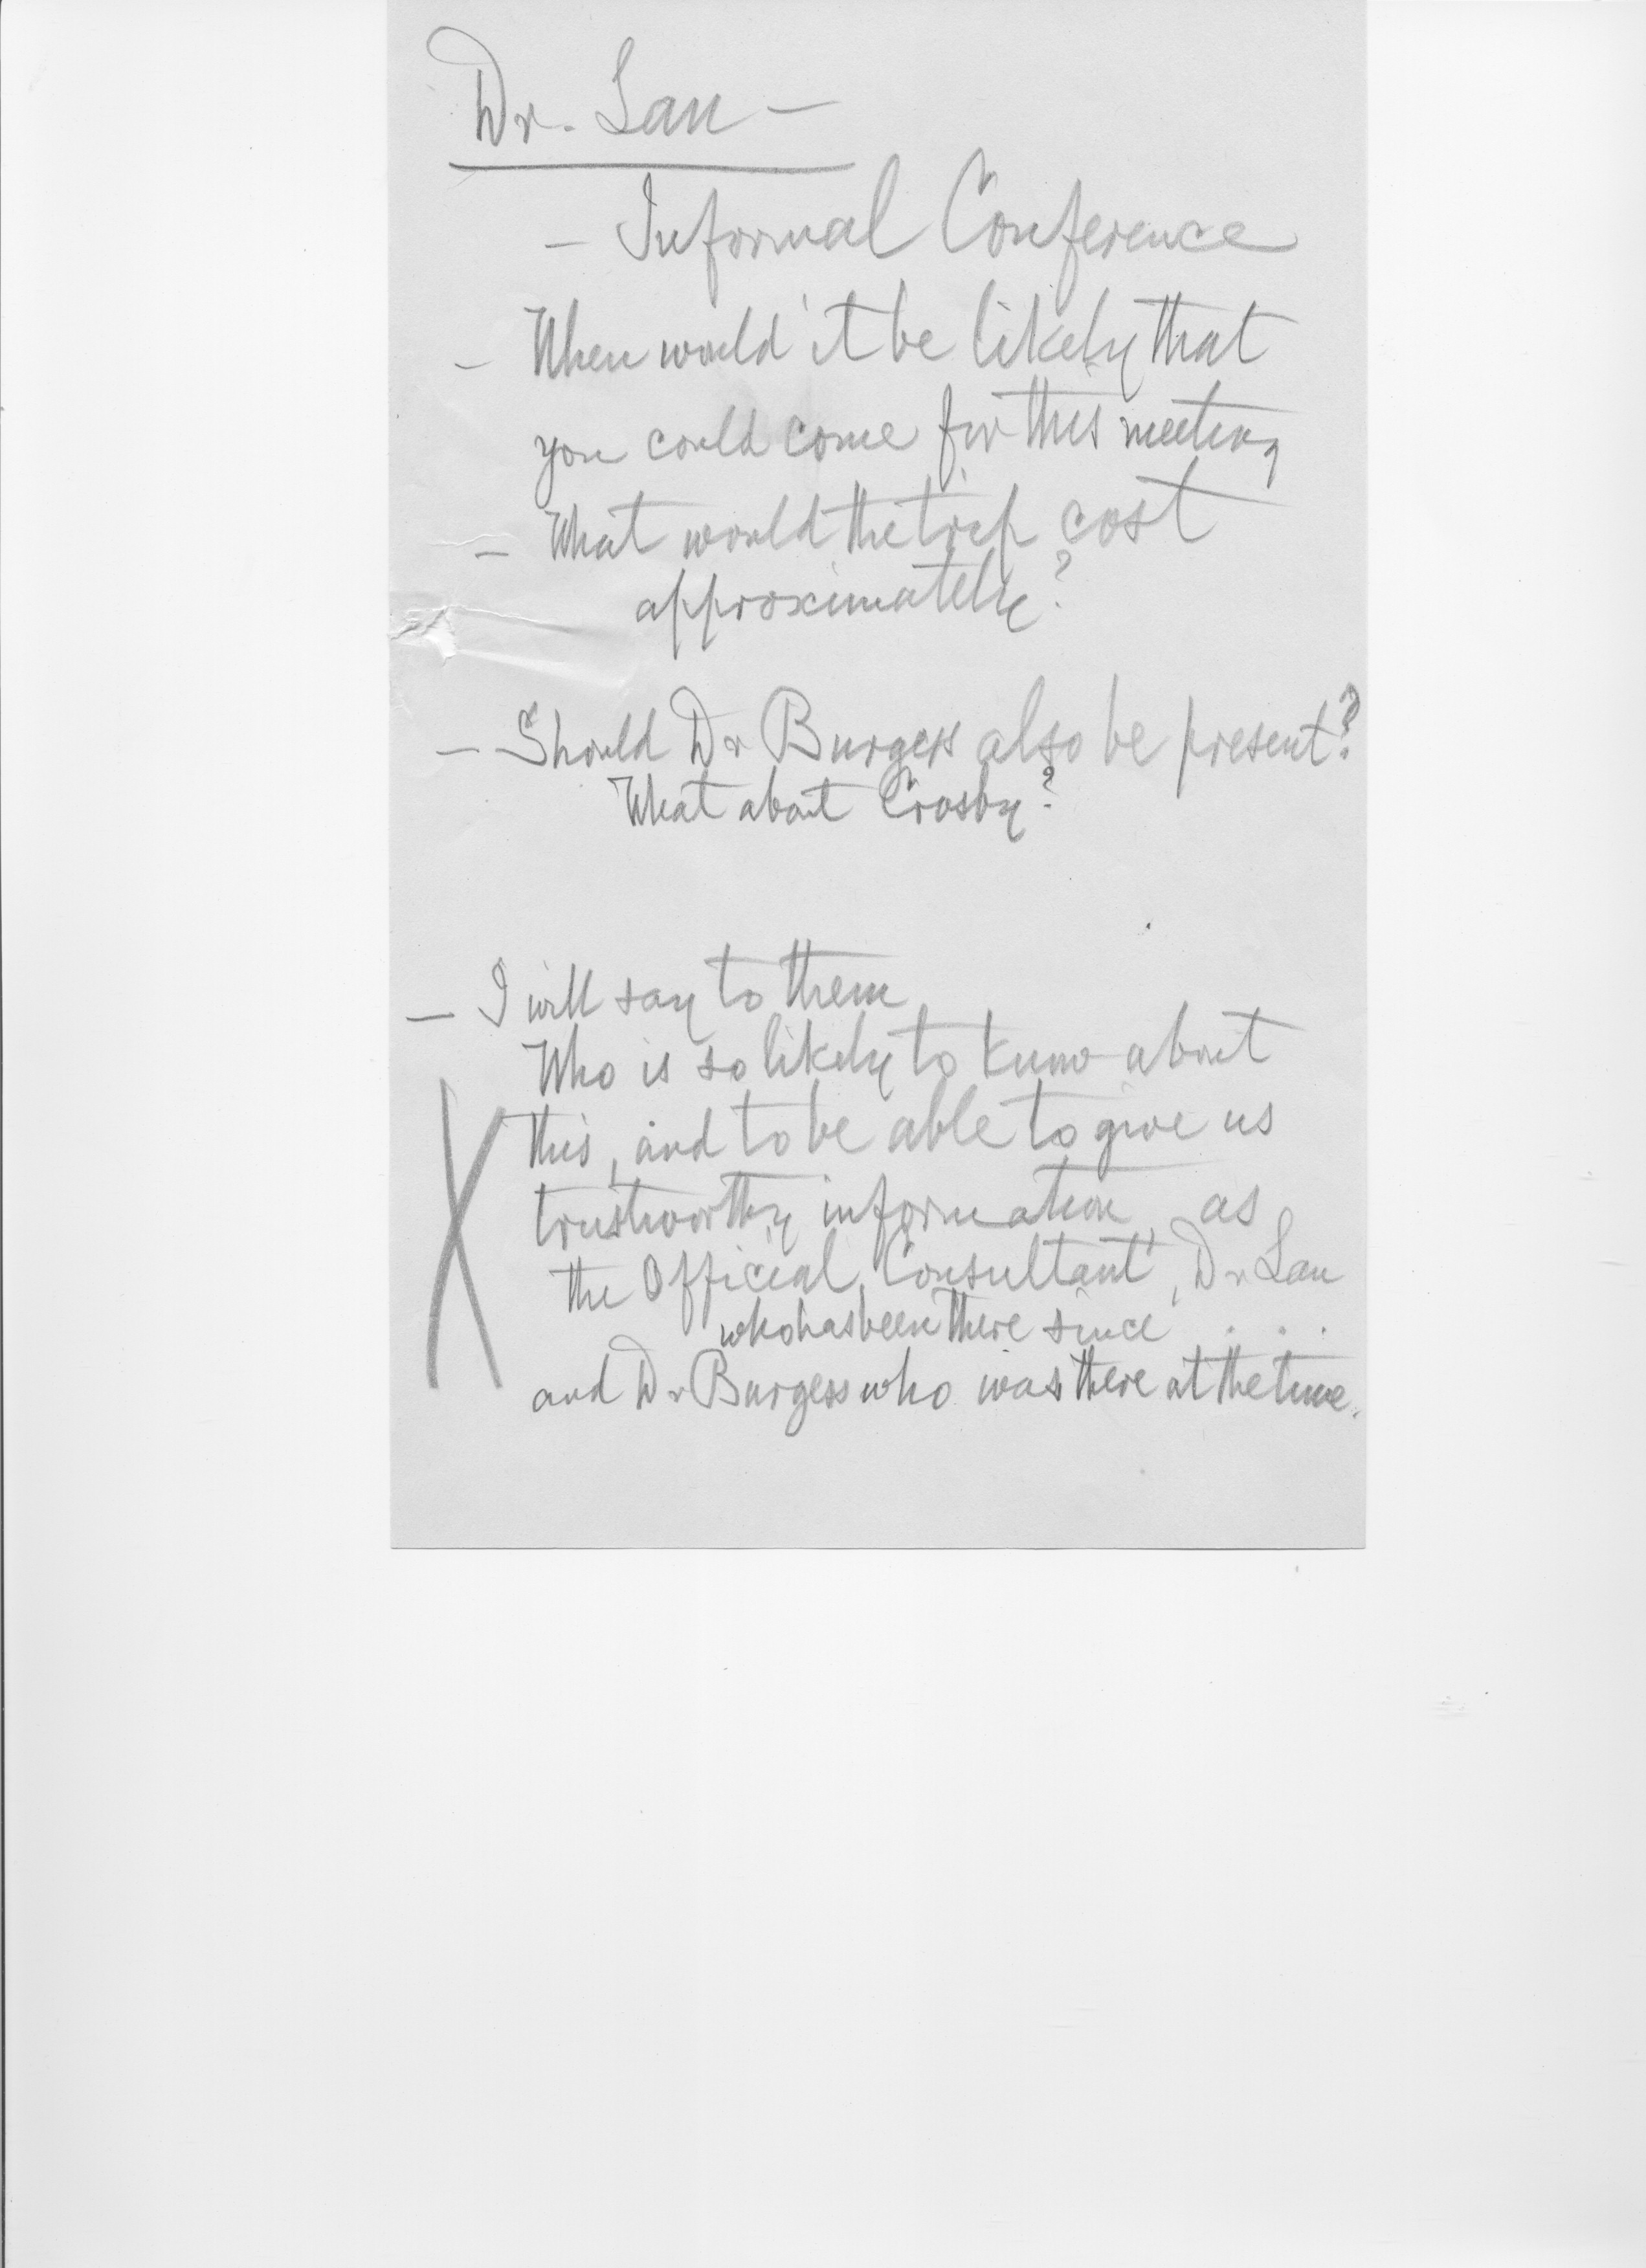 Dr. Lau —
— Informal Conference
— When would it be likely that
you could come for this meeting
— What would the trip cost
approximately?
— Should Dr Burgess also be present?
What about Crosby?
— I will say to them
Who is so likely to know about
X this, and to be able to give us
trustworthy information, as
the Official 'Consultant', Dr Lau
who has been there since . . . .
and Dr Burgess who was there at the time.